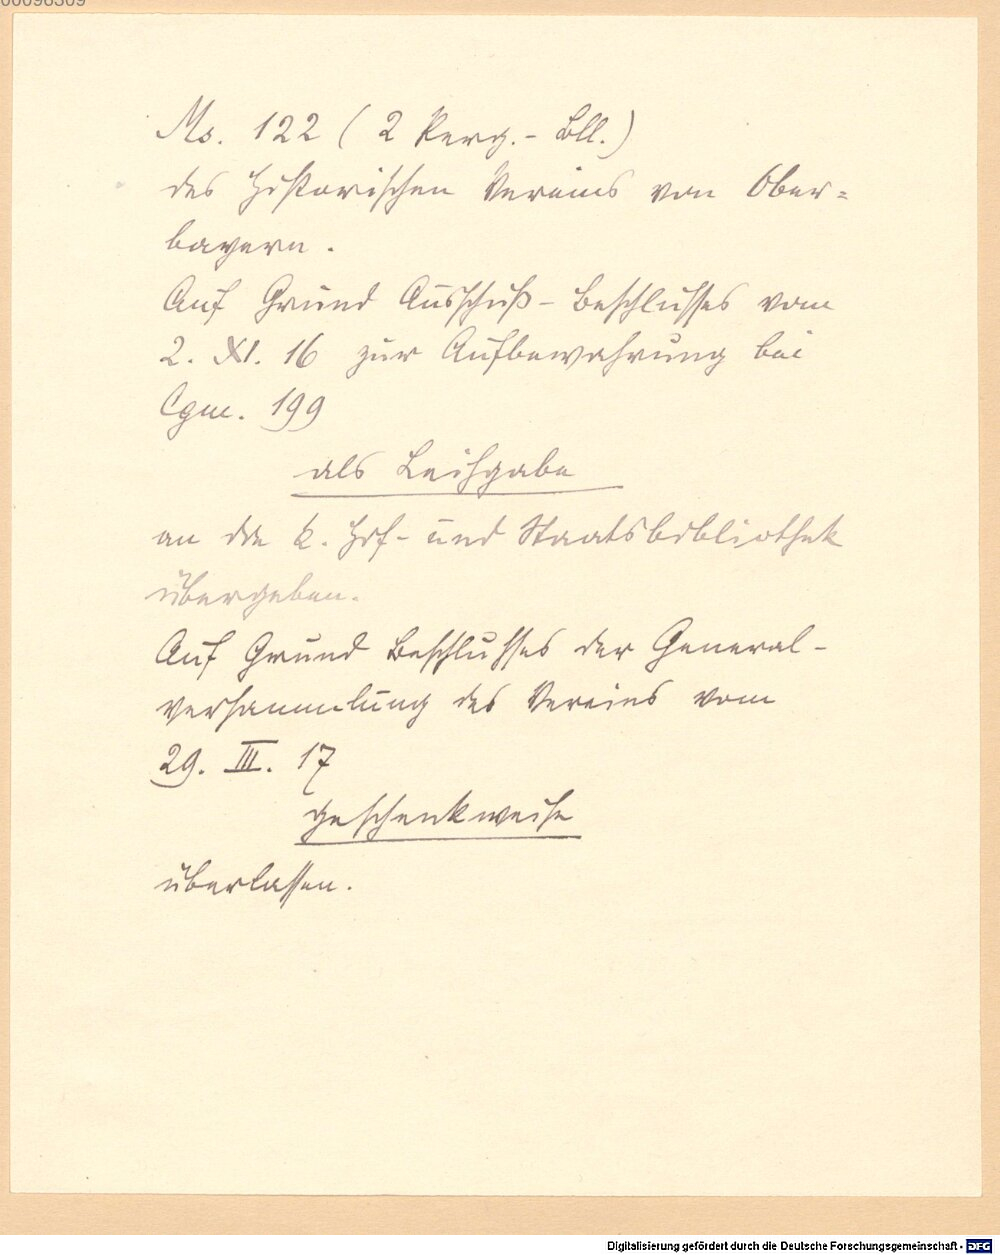 00096309
Ms. 122 (2 Perg.- Bll.)
des Historischen Vereins von Ober=
bayern.
Auf Grund Ausschuß-Beschlusses vom
2. XI. 16 zur Aufbewahrung bei
Cgm. 199
als Leihgabe
an die k. Hof- und Staatsbibliothek
übergeben.
Auf Grund Beschlusses der General-
versammlung des Vereins vom
29. III. 17
geschenkweise
überlassen.
Digitalisierung gefördert durch die Deutsche Forschungsgemeinschaft - DFG